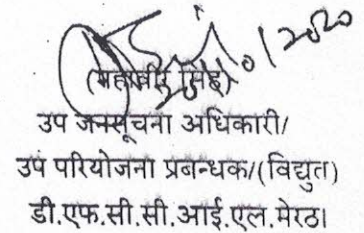 (महावीर सिंह)
उप जनसूचना अधिकारी/
उप परियोजना प्रबन्धक/(विद्युत)
डी.एफ.सी.सी.आई.एल.मेरठ।